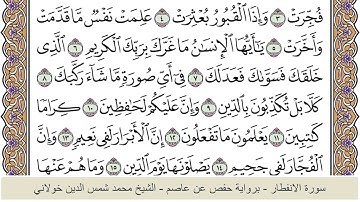 فُجِّرَتْ ٣ وَإِذَا ٱلْقُبُورُ بُعْثِرَتْ ٤ عَلِمَتْ نَفْسٌ مَّا قَدَّمَتْ
وَأَخَّرَتْ ٥ يَـٰٓأَيُّهَا ٱلْإِنسَـٰنُ مَا غَرَّكَ بِرَبِّكَ ٱلْكَرِيمِ ٦ ٱلَّذِى
خَلَقَكَ فَسَوَّىٰكَ فَعَدَلَكَ ٧ فِىٓ أَىِّ صُورَةٍ مَّا شَآءَ رَكَّبَكَ ٨
كَلَّا بَلْ تُكَذِّبُونَ بِٱلدِّينِ ٩ وَإِنَّ عَلَيْكُمْ لَحَـٰفِظِينَ ١٠ كِرَامًا
كَـٰتِبِينَ ١١ يَعْلَمُونَ مَا تَفْعَلُونَ ١٢ إِنَّ ٱلْأَبْرَارَ لَفِى نَعِيمٍ ١٣ وَإِنَّ
ٱلْفُجَّارَ لَفِى جَحِيمٍ ١٤ يَصْلَوْنَهَا يَوْمَ ٱلدِّينِ ١٥ وَمَا هُمْ عَنْهَا
سورة الانفطار - برواية حفص عن عاصم - الشيخ محمد شمس الدين خولاني